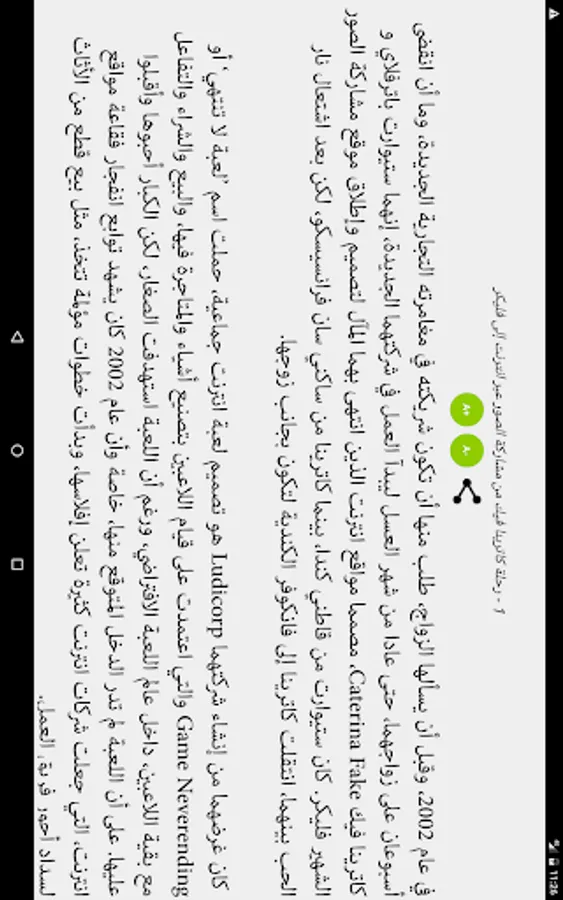 11:26
1 - رحلة كاترينا فيك من مشاركة الصور عبر انترنت إلى فليكر
A+ A-
في عام 2002، وقبل أن يسألها الزواج، طلب منها أن تكون شريكته في مغامرته التجارية الجديدة، وما أن انقضى
أسبوعان على زواجهما، حتى عادا من شهر العسل ليبدآ العمل في شركتهما الجديدة، إنهما ستيوارت باترفلاي و
كاترينا فيك Caterina Fake، مصمما مواقع انترنت الذين انتهى بهما المآل لتصميم وإطلاق موقع مشاركة الصور
الشهير فليكر. كان ستيوارت من قاطني كندا، بينما كاترينا من ساكني سان فرانسيسكو، لكن بعد اشتعال نار
الحب بينهما، انتقلت كاترينا إلى فانكوفر الكندية لتكون بجانب زوجها.
كان غرضهما من إنشاء شركتهما Ludicorp هو تصميم لعبة انترنت جماعية، حملت اسم 'لعبة لا تنتهي' أو
Game Neverending والتي اعتمدت على قيام اللاعبين بتصنيع أشياء والمتاجرة فيها، والبيع والشراء والتفاعل
مع بقية اللاعبين، داخل عالم اللعبة الافتراضي، ورغم أن اللعبة استهدفت الصغار، لكن الكبار أحبوها وأقبلوا
عليها. على أن اللعبة لم تدر الدخل المتوقع منها، خاصة وأن عام 2002 كان يشهد توابع انفجار فقاعة مواقع
انترنت، التي جعلت شركات انترنت كثيرة تعلن إفلاسها، وبدأت خطوات مؤلمة تتخذ، مثل بيع قطع من الأثاث
لسداد أجور فريق العمل.